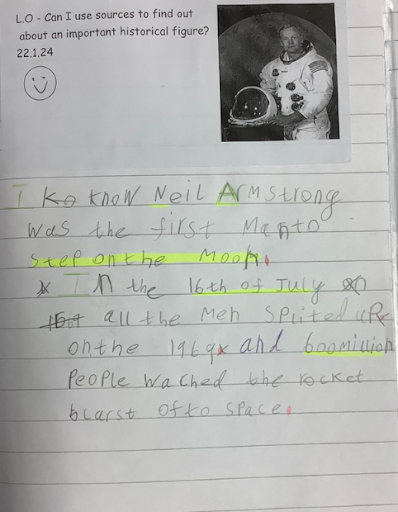 L.O - Can I use sources to find out
about an important historical figure?
22.1.24
I know Neil Armstrong
was the first Man to
step on the Moon.
In the 16th of July
all the Men spiited up
on the 1969 and 600million
People wached the rocket
blarst of to space.